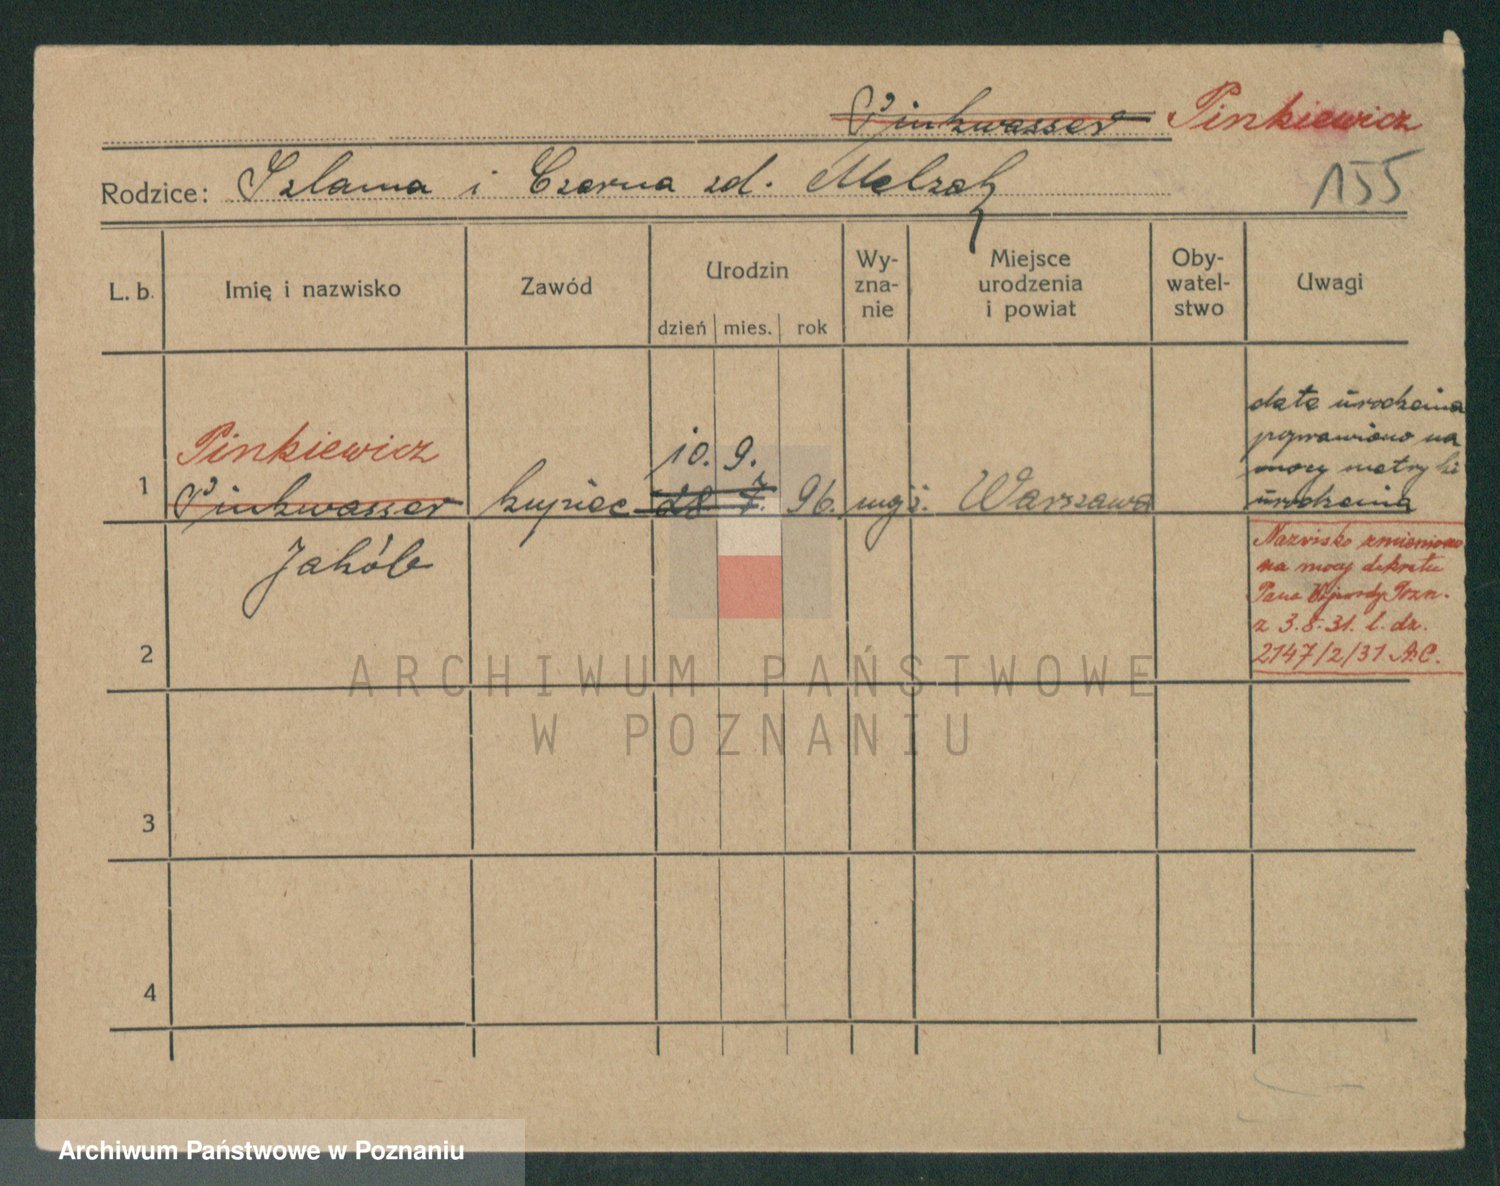 Pinkwasser Pinkiewicz
Rodzice: Szlama i Czarna zd. Melzak
155
L. b. Imię i nazwisko Zawód Urodzin dzień mies. rok Wy-zna-nie Miejsce urodzenia i powiat Oby-watel-stwo Uwagi
Pinkiewicz 10. 9.
1 Pinkwasser kupiec 28 7. 96. mojż. Warszawa
Jakób
datę urodzenia
poprawiono na
mocy metryki
urodzenia
Nazwisko zmieniono
na mocy dekretu
Pana Wojewody Pozn.
z 3.8.31. l. dz.
2147/2/31 A.C.
2
3
4
ARCHIWUM PAŃSTWOWE
W POZNANIU
Archiwum Państwowe w Poznaniu